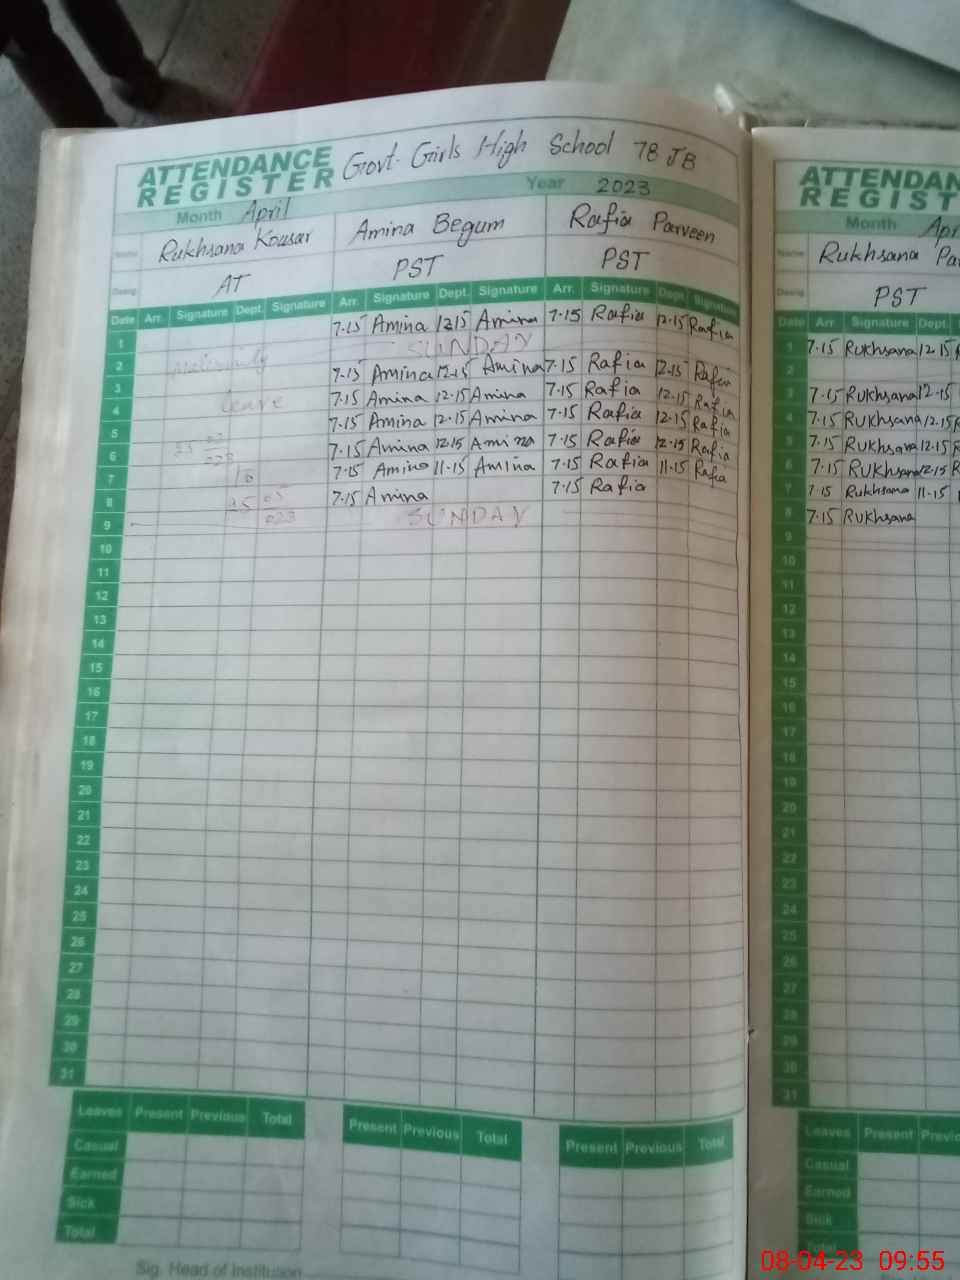 ATTENDANCE REGISTER Govt. Girls High School 78 JB
Month April Year 2023
Name Rukhsana Kousar Amina Begum Rafia Parveen
Desig AT PST PST
Date Arr. Signature Dept. Signature Arr. Signature Dept. Signature Arr. Signature Dept. Signature
1 7.15 Amina 12.15 Amina 7.15 Rafia 12.15 Rafia
2 SUNDAY
3 maternity 7.15 Amina 12.15 Amina 7.15 Rafia 12.15 Rafia
4 leave 7.15 Amina 12.15 Amina 7.15 Rafia 12.15 Rafia
5 7.15 Amina 12.15 Amina 7.15 Rafia 12.15 Rafia
6 7.15 Amina 12.15 Amina 7.15 Rafia 12.15 Rafia
7 to 7.15 Amina 11.15 Amina 7.15 Rafia 11.15 Rafia
8 7.15 Amina 7.15 Rafia
9 SUNDAY
10
11
12
13
14
15
16
17
18
19
20
21
22
23
24
25
26
27
28
29
30
31
Leaves Present Previous Total Present Previous Total Present Previous Total
Casual
Earned
Sick
Total
Sig. Head of Institution
ATTENDAN
REGIST
Month Apr
Name Rukhsana Pa
Desig PST
Date Arr. Signature Dept.
1 7.15 Rukhsana 12.15
2
3 7.15 Rukhsana 12.15
4 7.15 Rukhsana 12.15
5 7.15 Rukhsana 12.15
6 7.15 Rukhsana 12.15
7 7.15 Rukhsana 11.15
8 7.15 Rukhsana
9
10
11
12
13
14
15
16
17
18
19
20
21
22
23
24
25
26
27
28
29
30
31
Leaves Present Previo
Casual
Earned
Sick
Total
08-04-23 09:55